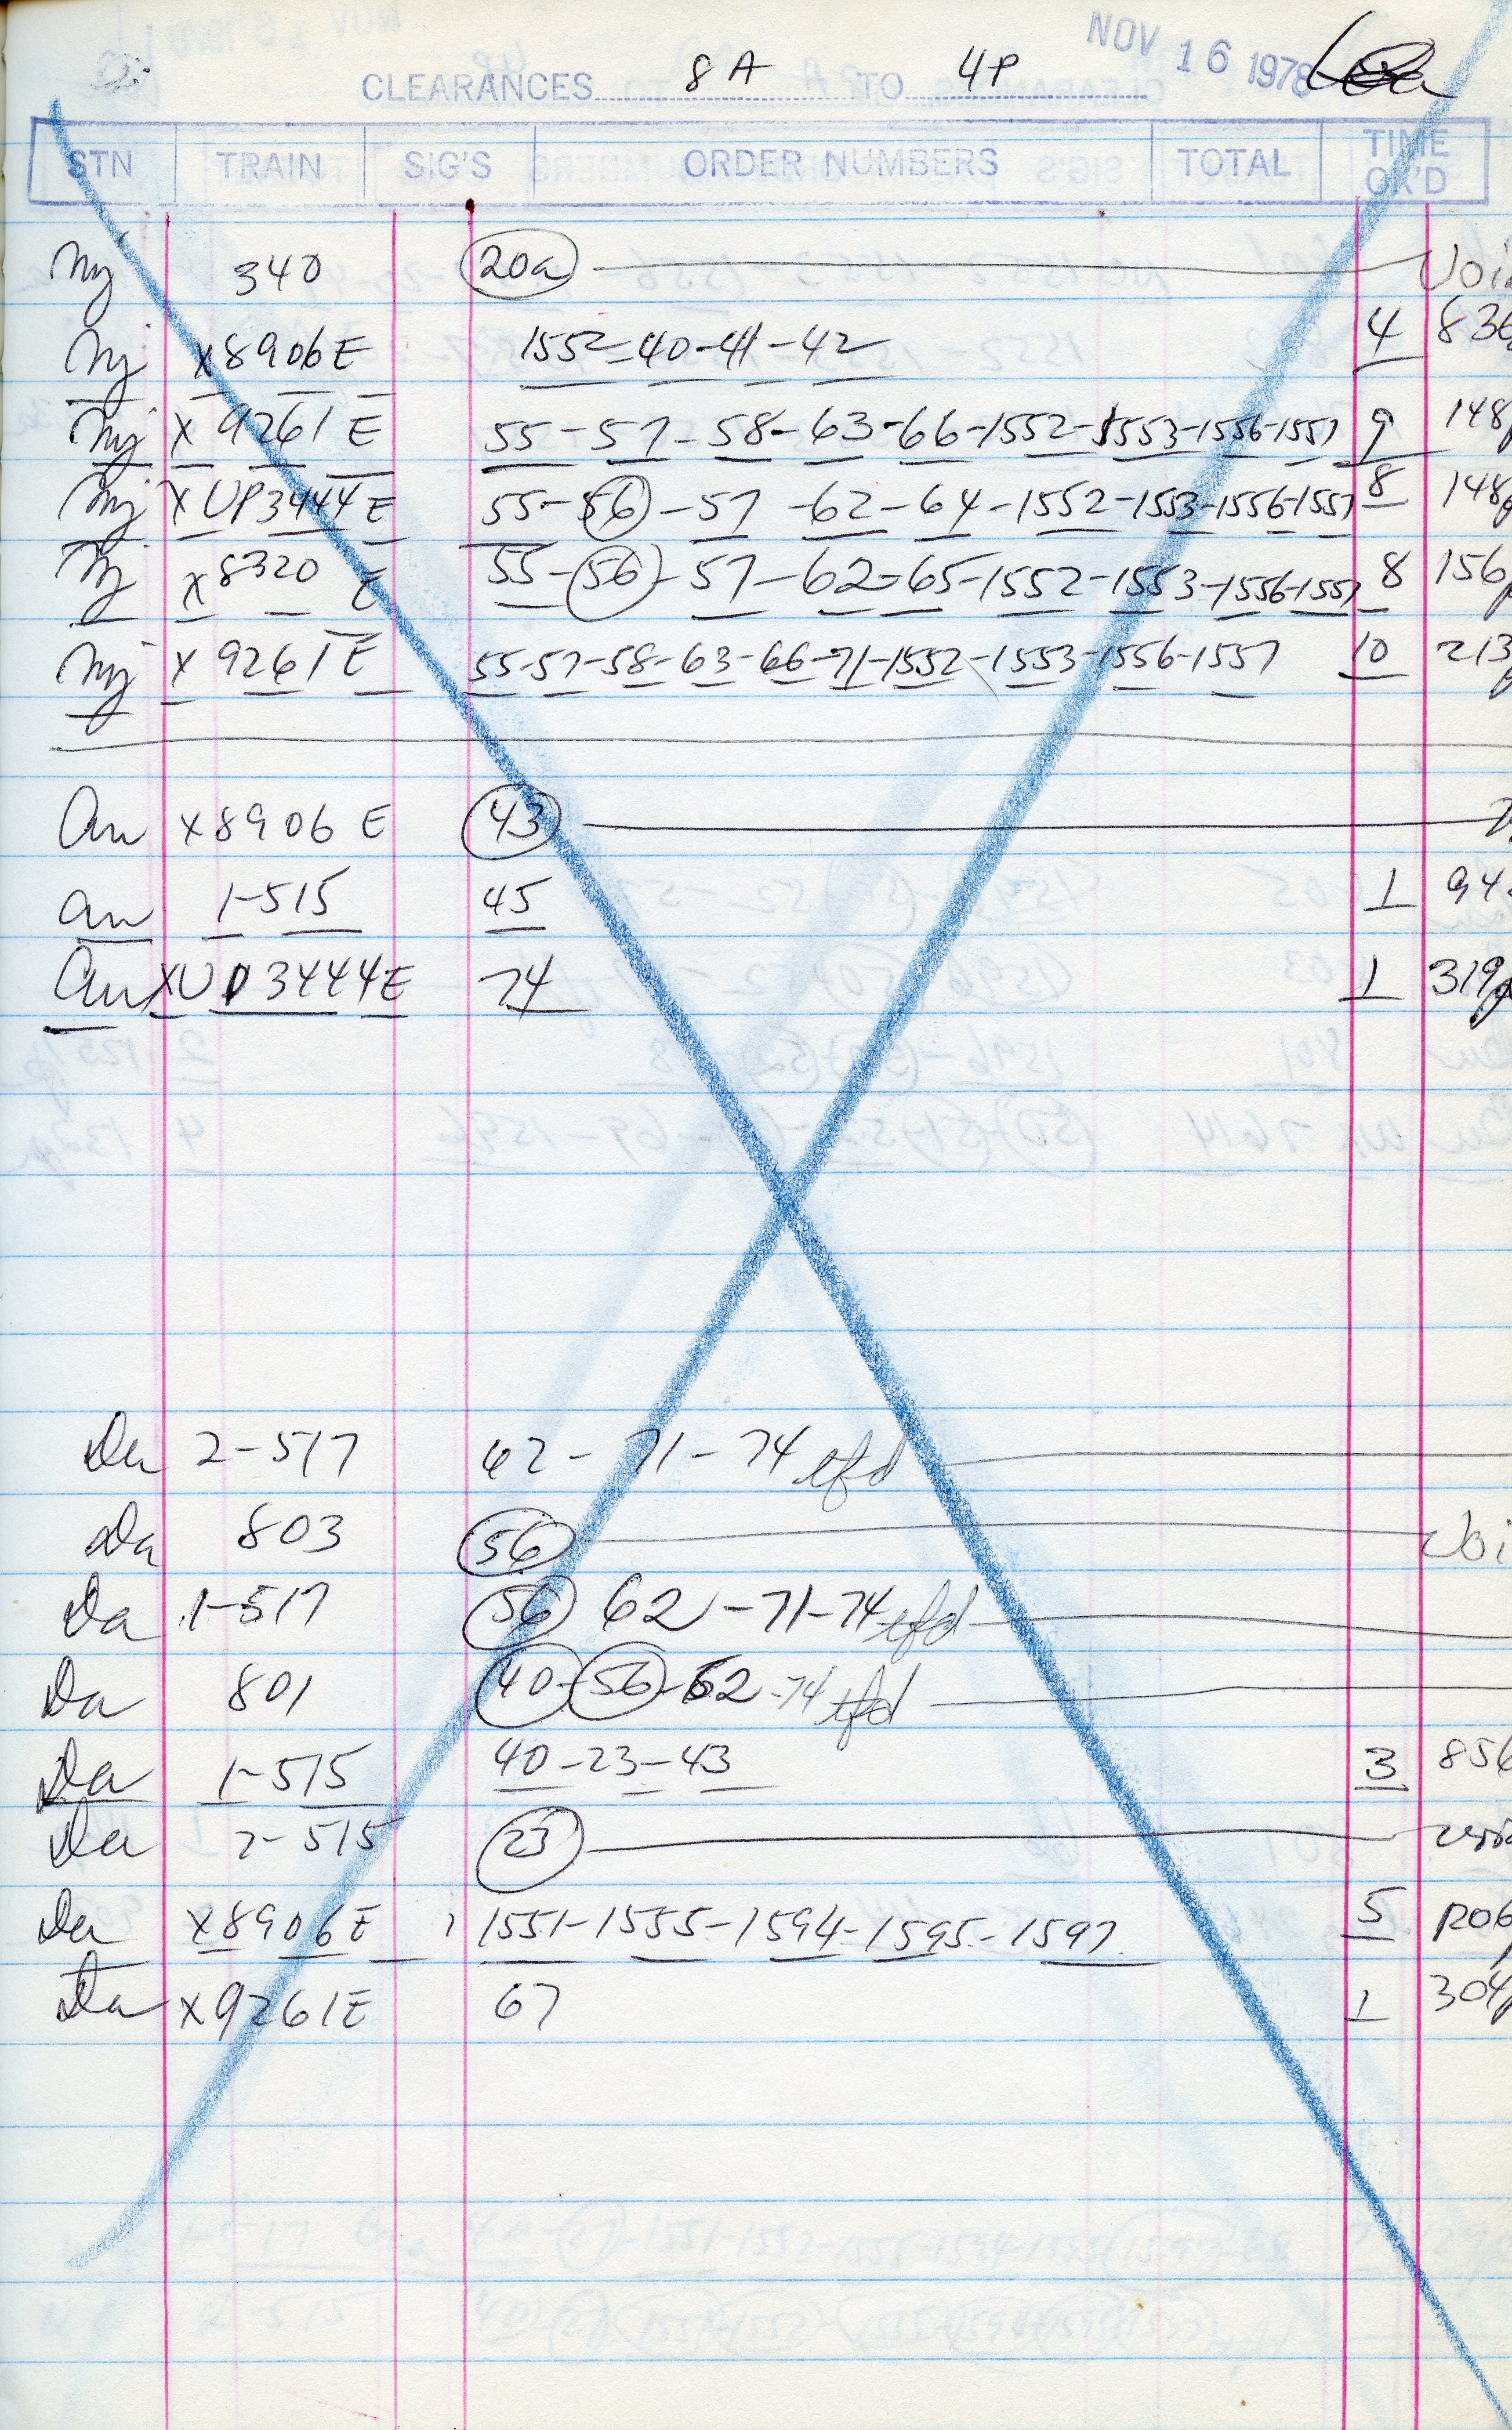 NOV 16 1978
CLEARANCES 8A TO 4P
STN TRAIN SIG'S ORDER NUMBERS TOTAL TIME OK'D
Nj 340 20a Voi
Nj x8906E 1552-40-41-42 4 836
Nj x 9261 E 55-57-58-63-66-1552-1553-1556-1557 9 148p
Nj x UP3444E 55-56-57-62-64-1552-1553-1556-1557 8 148p
Nj x 8320 E 55-56-57-62-65-1552-1553-1556-1557 8 156p
Nj x 9261 E 55-57-58-63-66-71-1552-1553-1556-1557 10 213p
An x8906 E 43
An 1-515 45 1 94
An XUP3444E 74 1 319p
Da 2-517 62-71-74
Da 803 56 Voi
Da 1-517 56 62-71-74
Da 801 40-56-62-74
Da 1-515 40-23-43 3 856
Da 2-515 23
Da x8906E 1551-1555-1594-1595-1597 5 1206
Da x9261E 67 1 304p